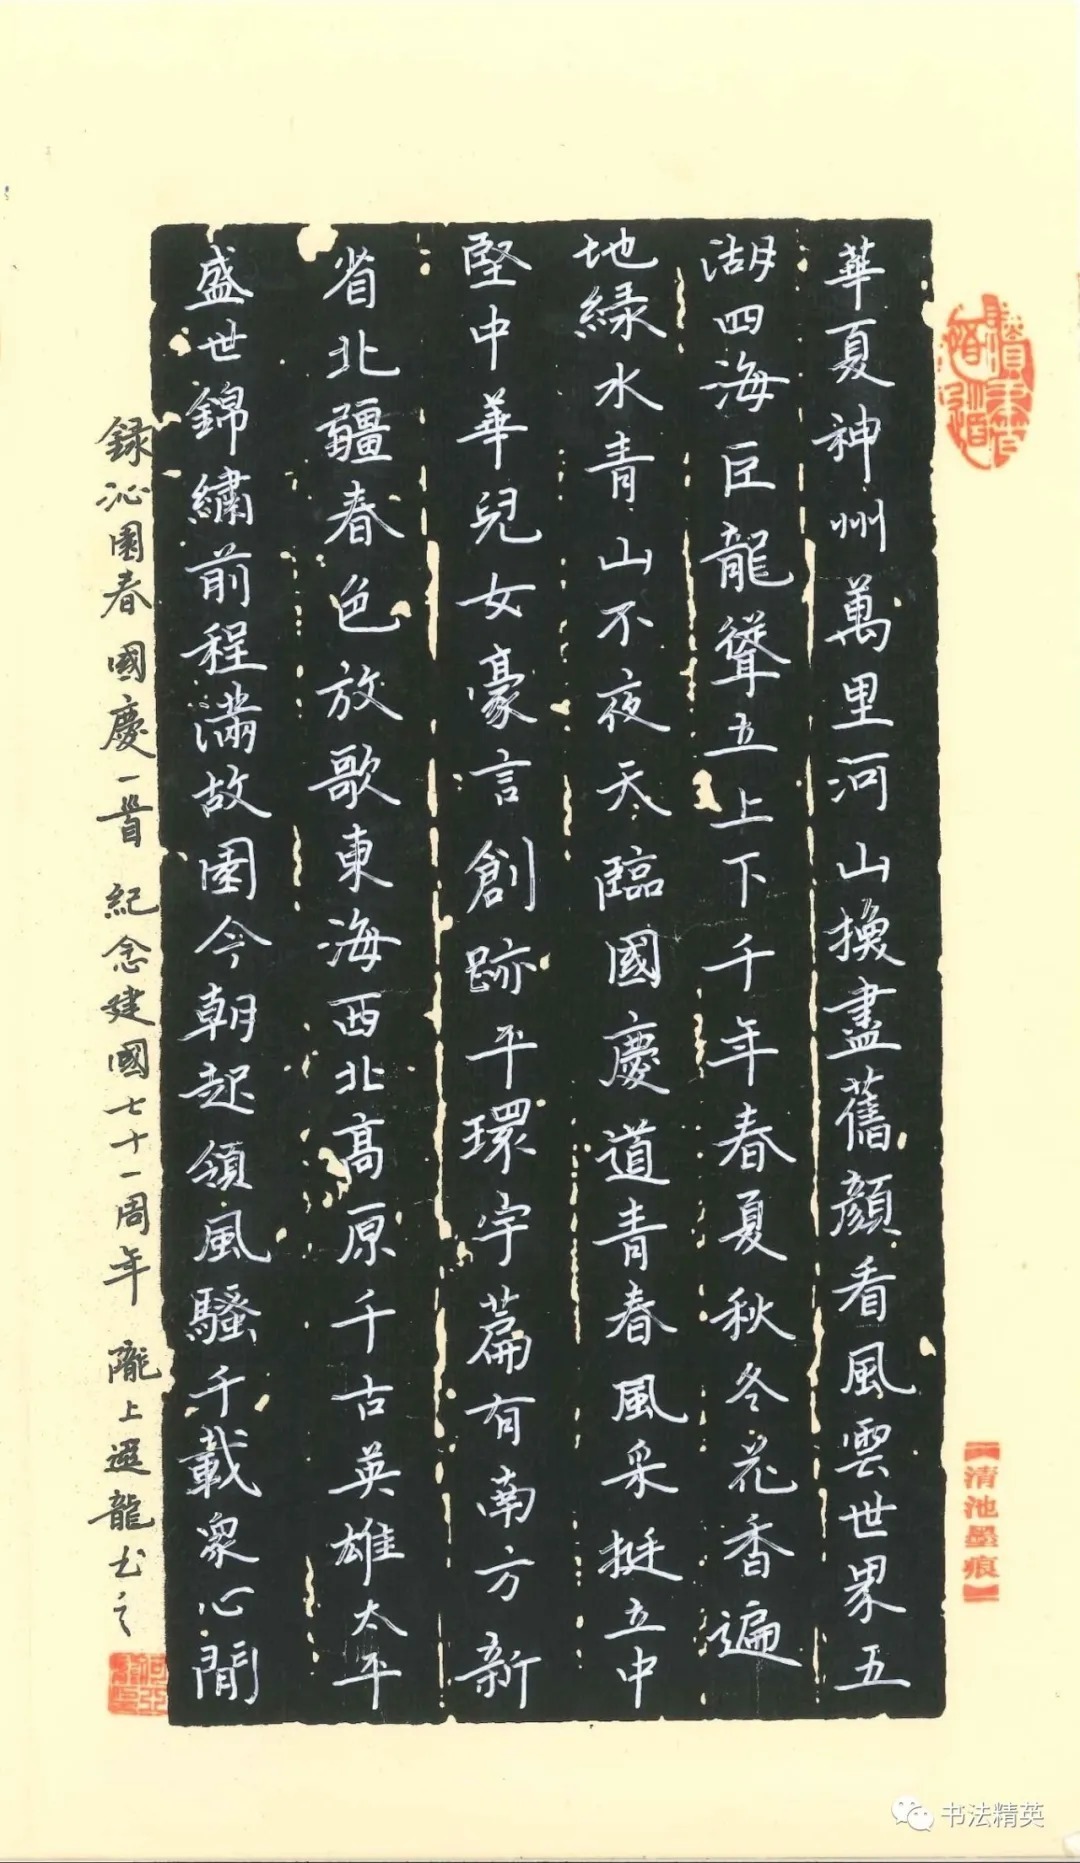 華夏神州萬里河山換盡舊顏看風雲世界五
湖四海巨龍聳五上下千年春夏秋冬花香遍
地緑水青山不夜天臨國慶道青春風采挺立中
堅中華兒女豪言創跡平環宇篇有南方新
省北疆春色放歌東海西北高原千古英雄太平
盛世錦繡前程滿故園今朝起領風騷千載衆心間
録沁園春國慶一首 紀念建國七十一周年 隴上遐龍书之
【清池墨痕】
书法精英